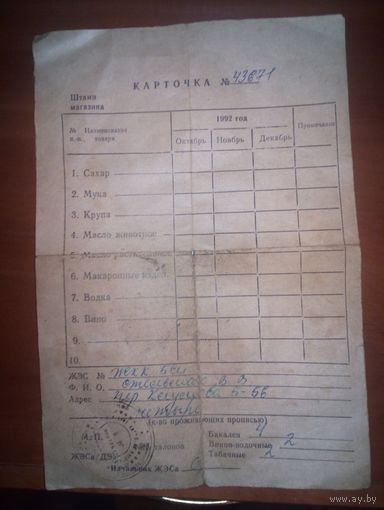 КАРТОЧКА № 43671
Штамп
магазина
№ Наименование
п.-п. товара
1992 год
Примечание
Октябрь Ноябрь Декабрь
1. Сахар
2. Мука
3. Крупа
4. Масло животное
5. Масло растительное
6. Макаронные издел.
7. Водка
8. Вино
9.
10.
ЖЭС № ЖКХ
Ф. И. О. В З
Адрес пер. 5-56
четыре
(к-во проживающих прописью)
М. П. Бакалея 4
талонов Винно-водочные 2
ЖЭСа Табачные 2
Начальник ЖЭСа
www.ay.by